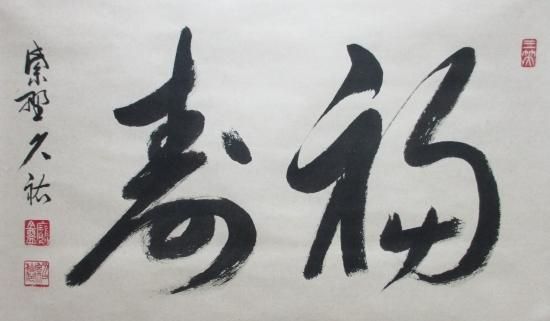 福寿
紫野久祐